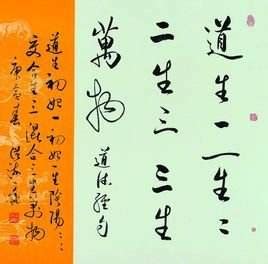 道生一一生二
二生三三生
萬物 道德經句
道生初始一初始一生陰陽二二
交合生三混合三生万物
庚寅春